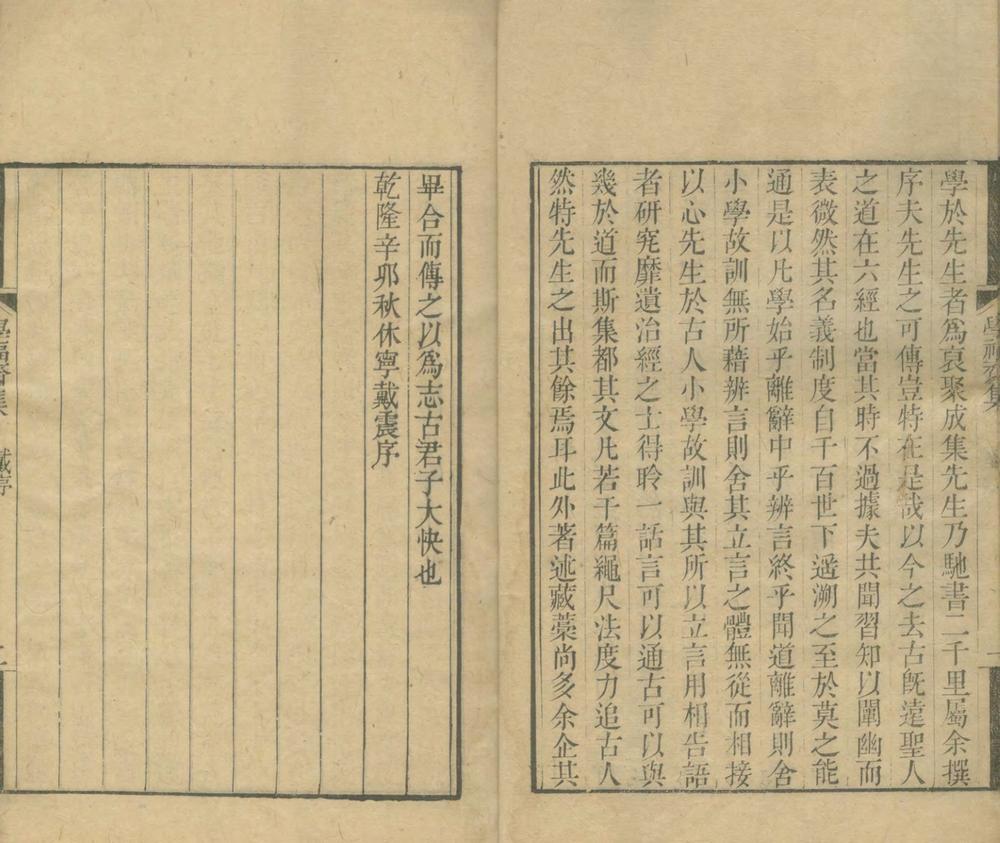 學於先生者爲裒聚成集先生乃馳書二千里屬余撰
序夫先生之可傳豈特在是哉以今之去古旣遠聖人
之道在六經也當其時不過據夫共聞習知以闡幽而
表微然其名義制度自千百世下遥溯之至於莫之能
通是以凡學始乎離辭中乎辨言終乎聞道離辭則舍
小學故訓無所藉辨言則舍其立言之體無從而相接
以心先生於古人小學故訓與其所以立言用相告語
者研究靡遺治經之士得聆一話言可以通古可以與
幾於道而斯集都其文凡若干篇繩尺法度力追古人
然特先生之出其餘焉耳此外著述藏藁尚多余企其
畢合而傳之以爲志古君子大快也
乾隆辛卯秋休寧戴震序
學福齋集 戴序